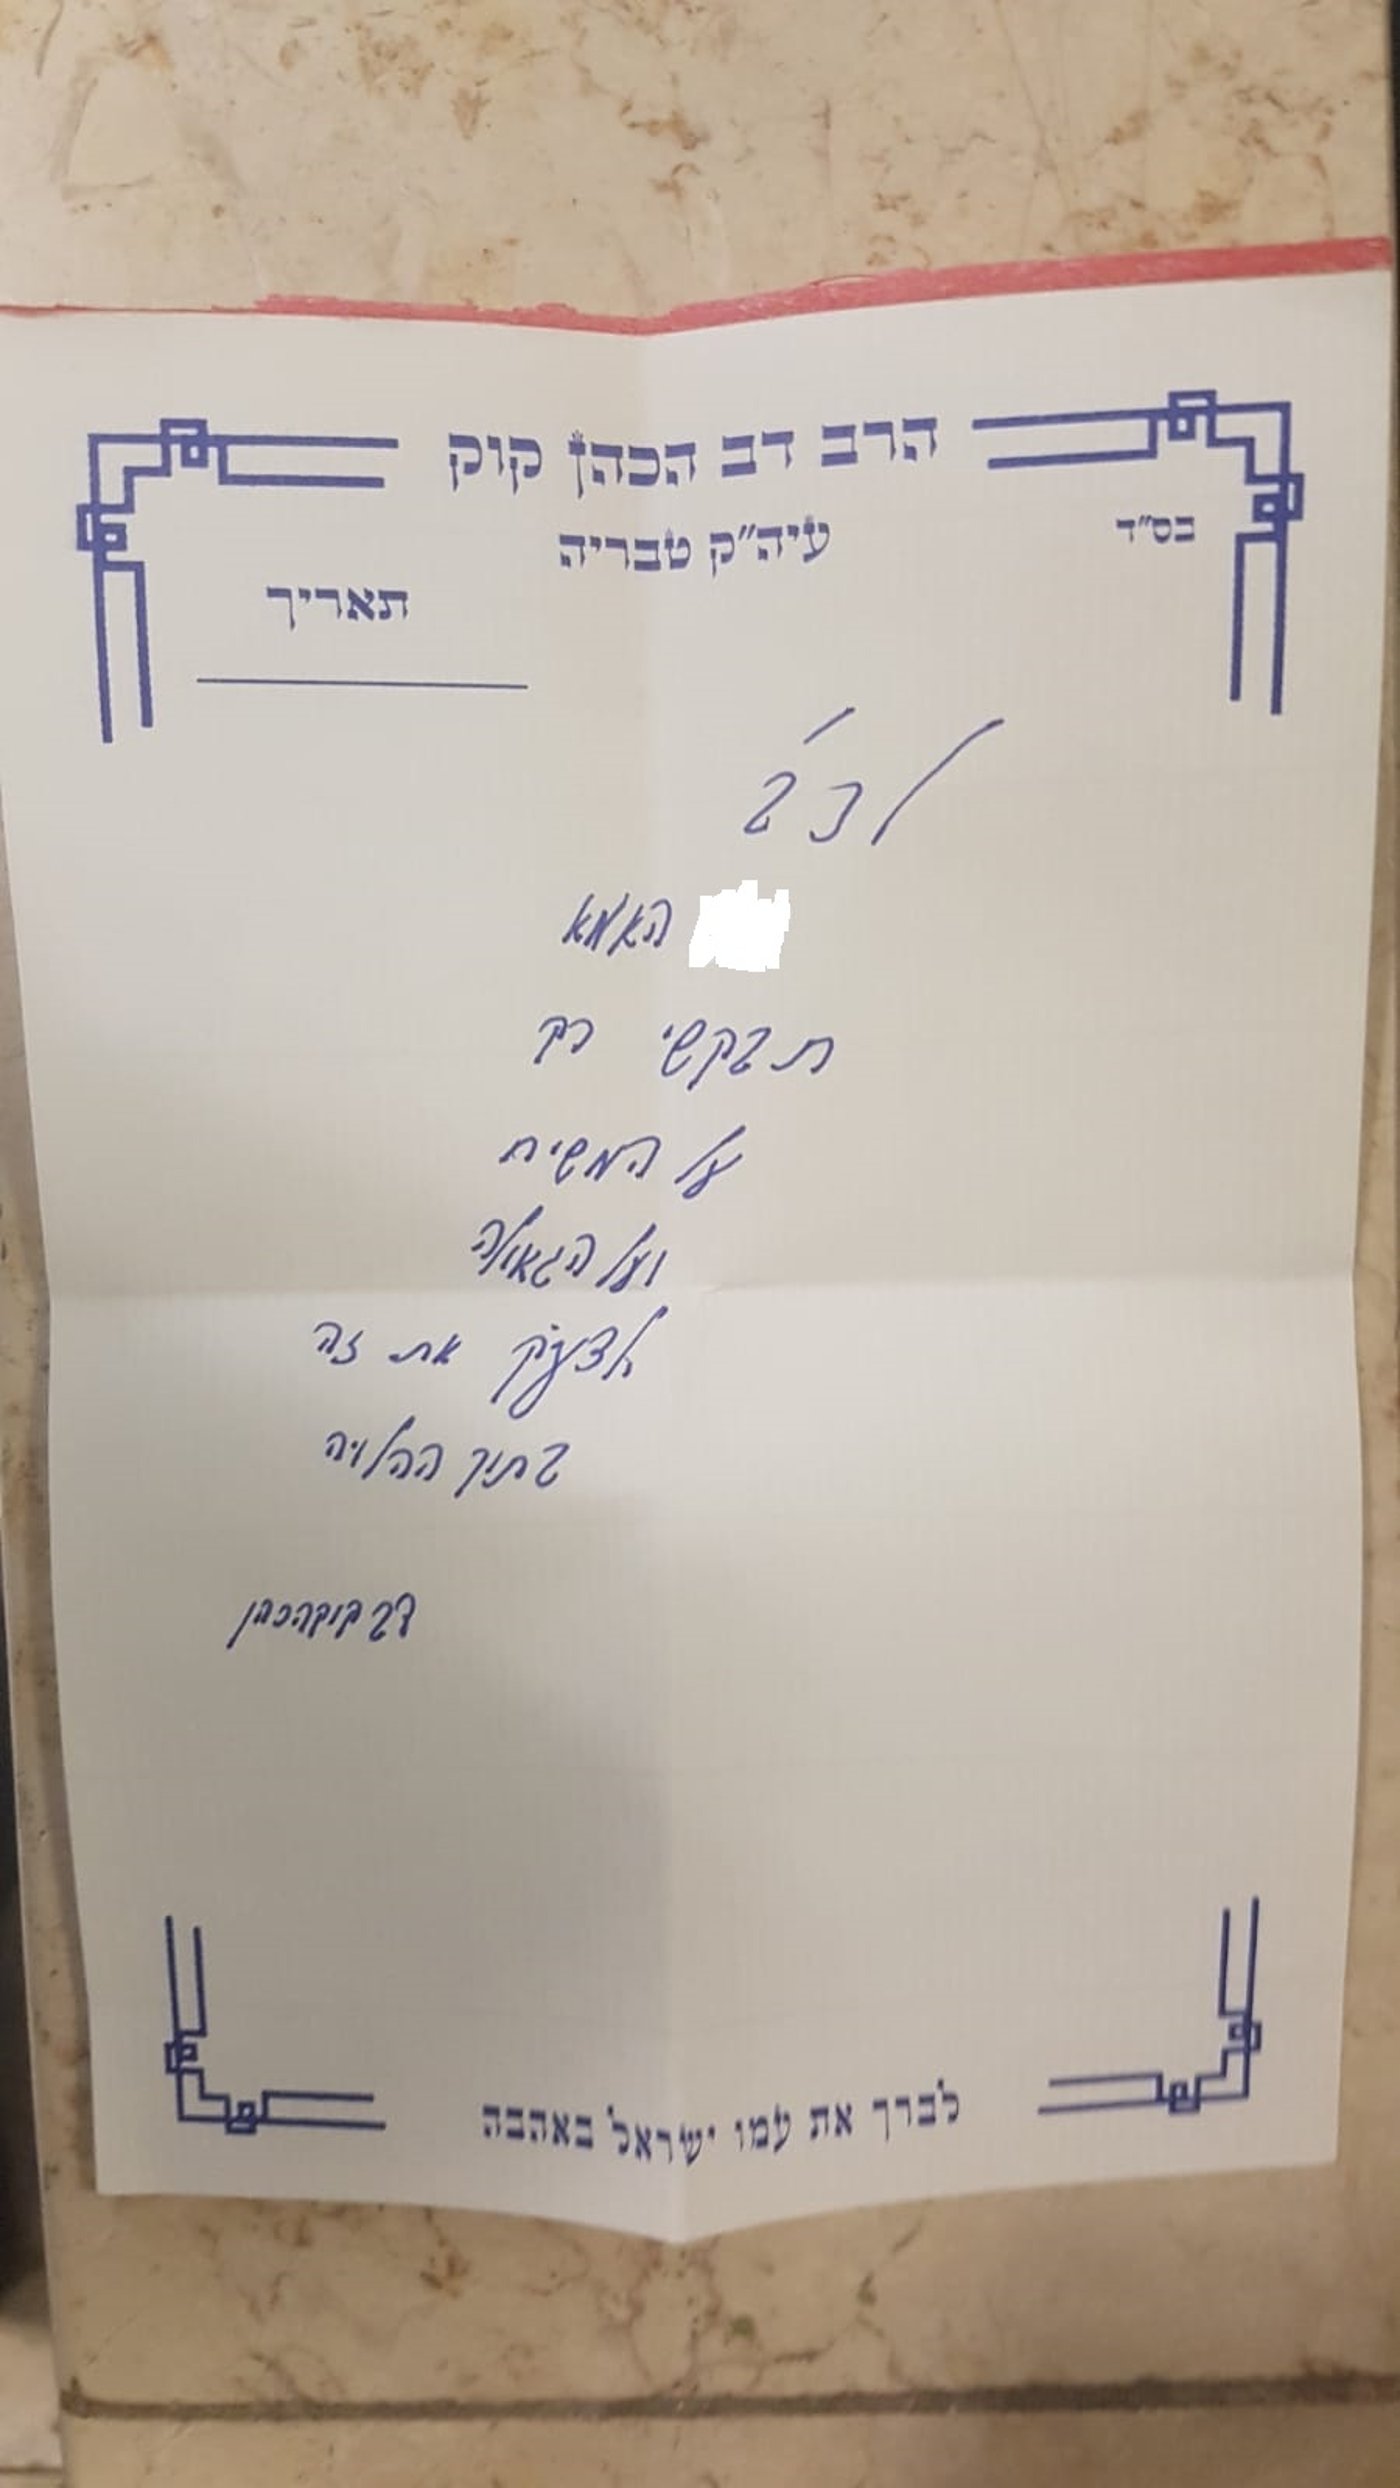 הרב דב הכהן קוק
בס"ד
עיה"ק טבריה
תאריך
לכ'
האמא
תבקשי רק
על המשיח
ועל הגאולה
לצעוק את זה
בתוך ההלויה
דב קוק הכהן
לברך את עמו ישראל באהבה